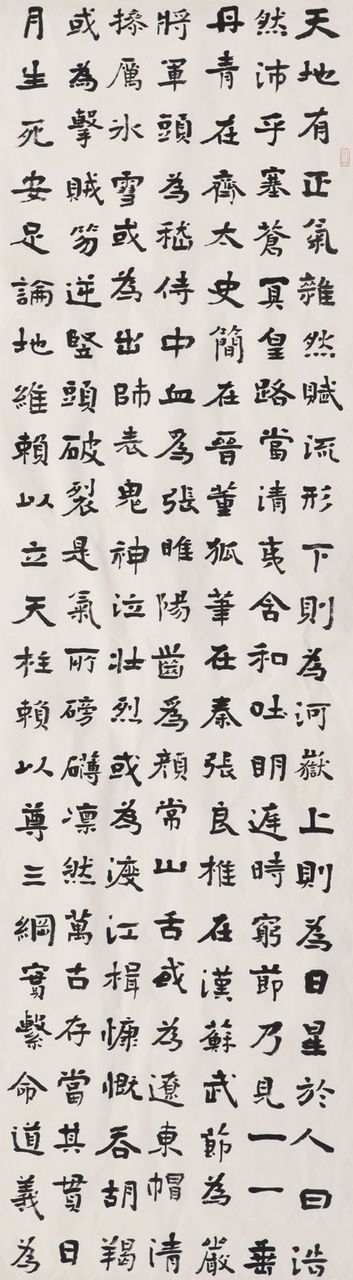 天地有正氣雜然賦流形下則為河嶽上則為日星於人曰浩
然沛乎塞蒼冥皇路當清夷含和吐明庭時窮節乃見一一垂
丹青在齊太史簡在晉董狐筆在秦張良椎在漢蘇武節為嚴
將軍頭為嵇侍中血爲張睢陽齒爲顏常山舌或為遼東帽清
操厲冰雪或為出師表鬼神泣壯烈或為渡江楫慷慨吞胡羯
或為擊賊笏逆豎頭破裂是氣所磅礴凜然萬古存當其貫日
月生死安足論地維賴以立天柱賴以尊三綱實繫命道義為